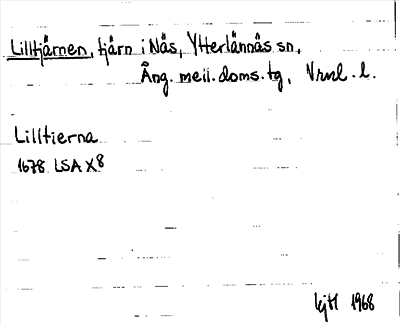 Lilltjärnen, tjärn i Näs, Ytterlännäs sn,
Ång. mell. doms. tg, Vrnl. l.
Lilltierna
1678 LSA X8
1968